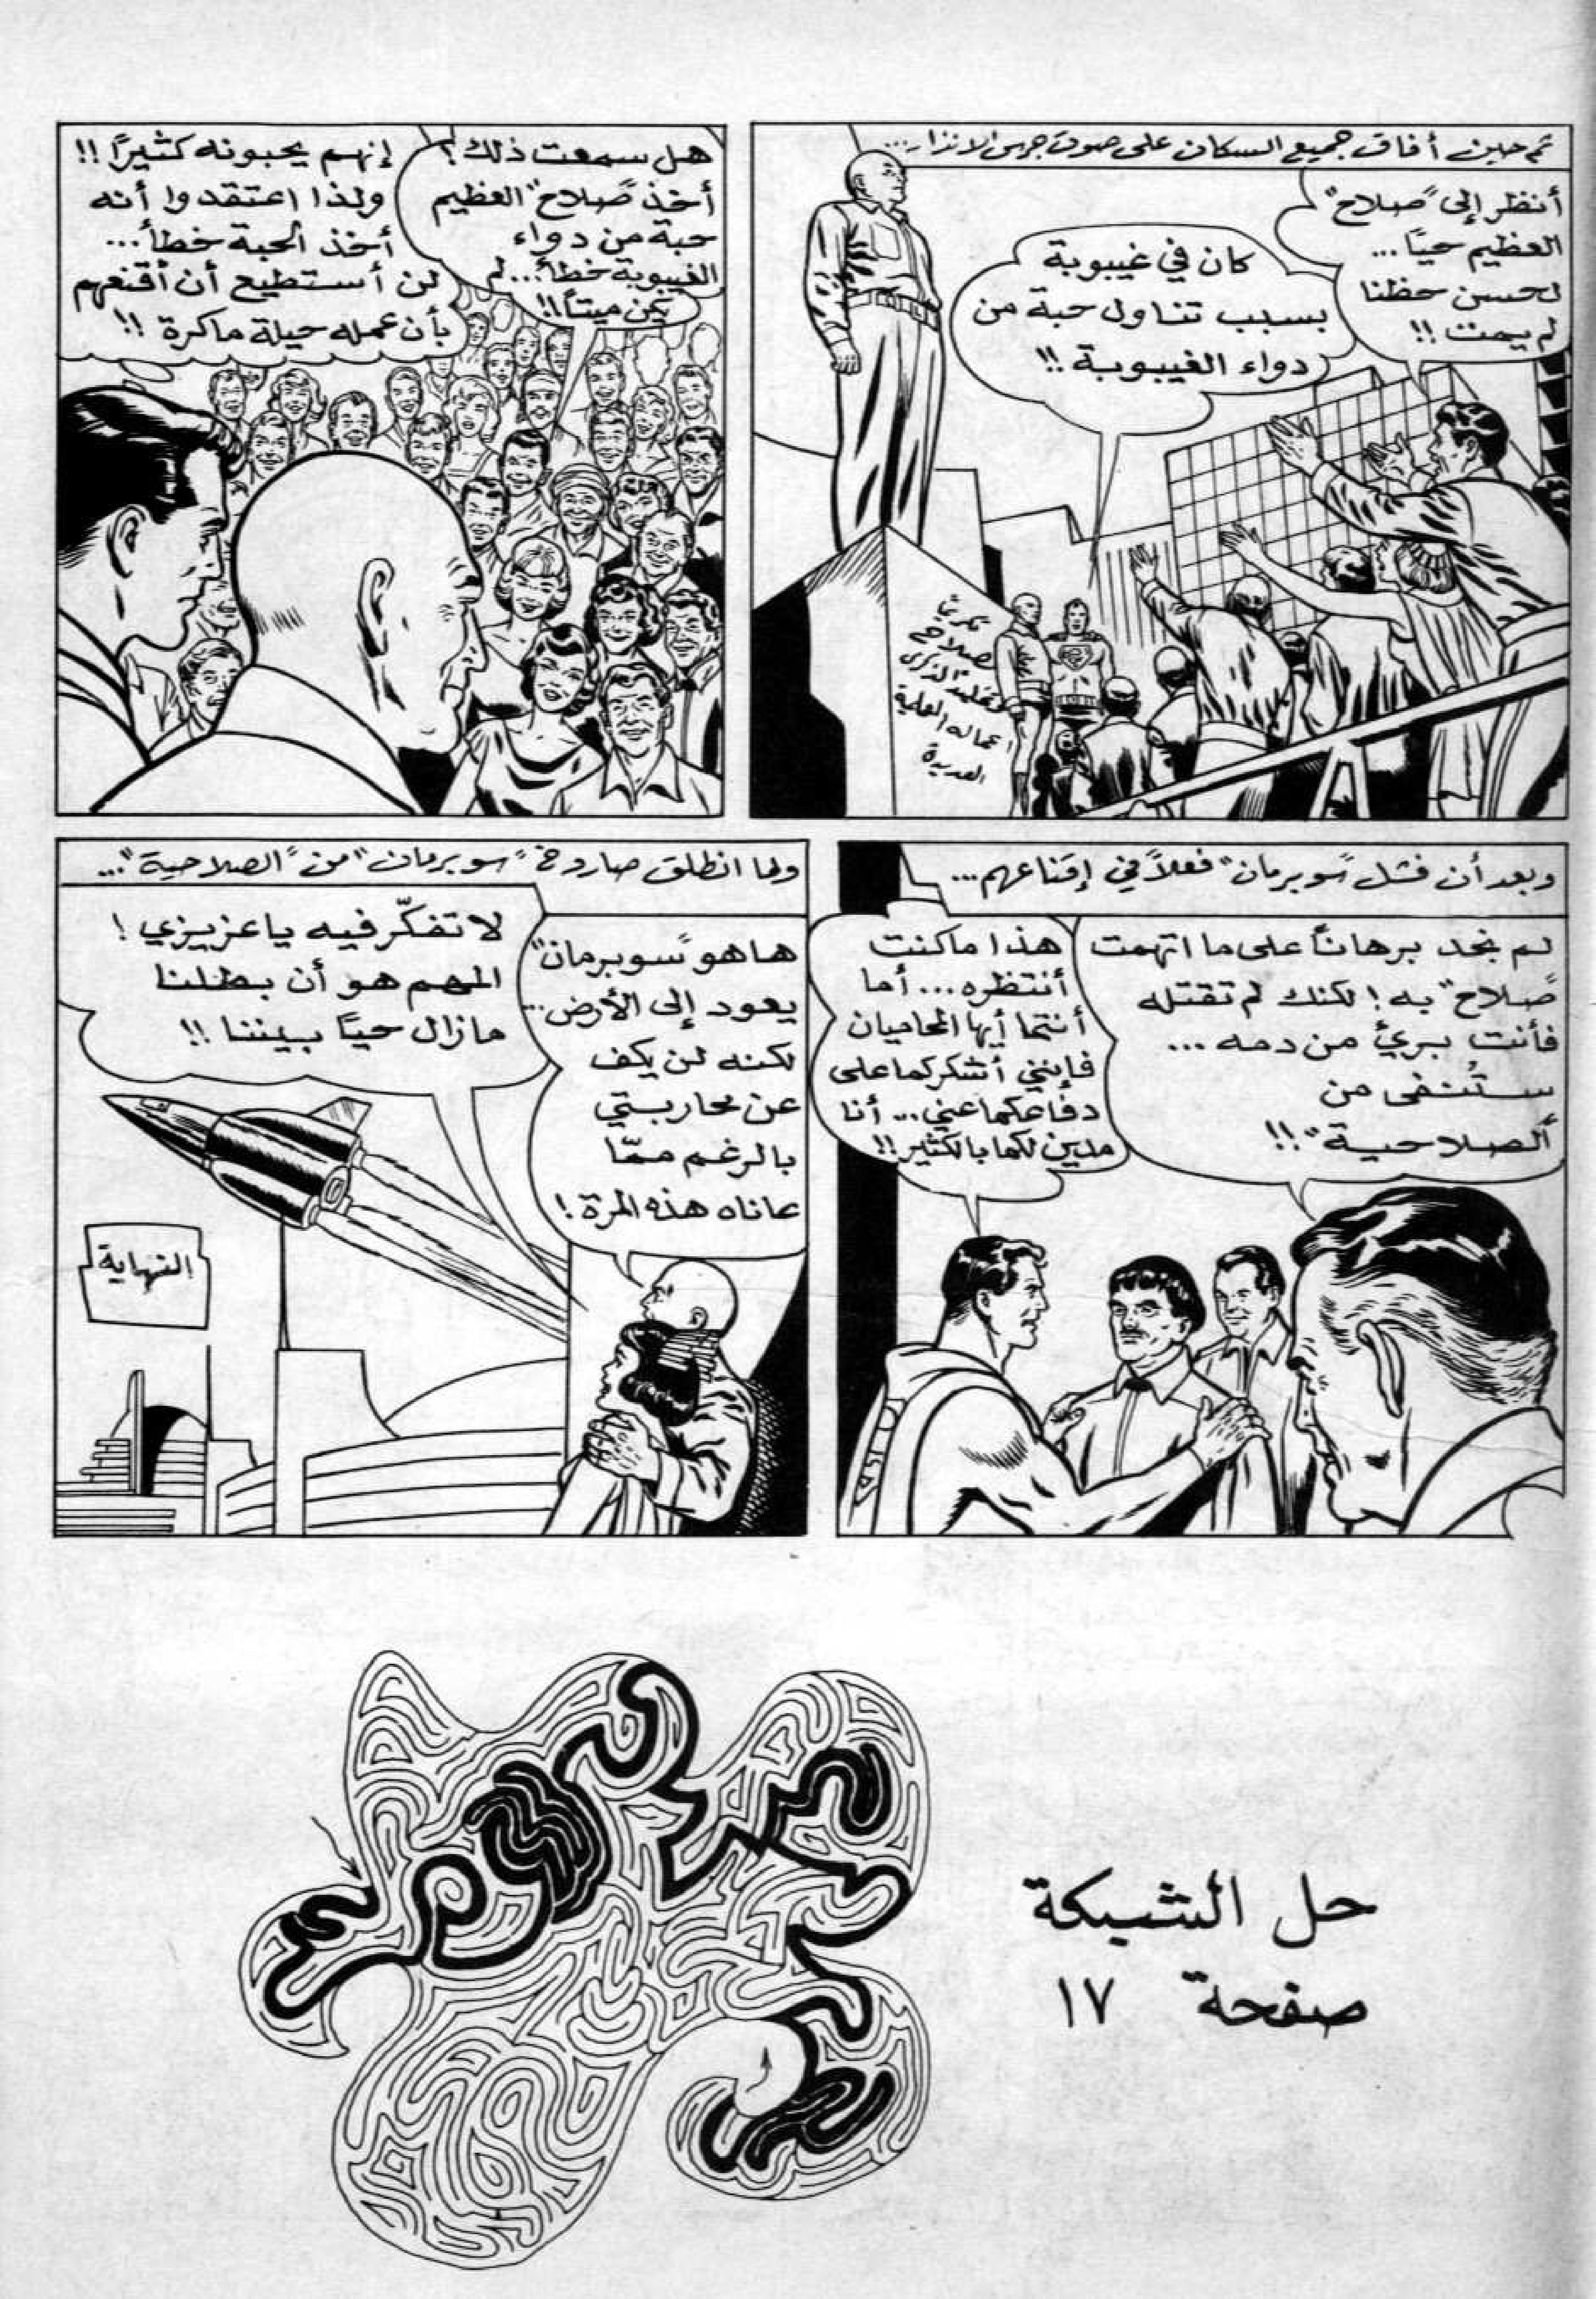 ثم حين أفاق جميع السكان على صوت جرس الانذار...
أنظر إلى "صلاح"
العظيم حيًا...
لحسن حظنا
لم يمت !!
كان في غيبوبة
بسبب تناول حبة من
دواء الغيبوبة !!
تكريمًا
لصلاح
وتخليدًا لذكرى
اعماله العلمية
العديدة
هل سمعت ذلك ؟
أخذ "صلاح" العظيم
حبة من دواء
الغيبوبة خطأ... لم
يكن ميتاً !!
إنهم يحبونه كثيرًا !!
ولذا اعتقدوا أنه
أخذ الحبة خطأ...
لن أستطيع أن أقنعهم
بأن عمله حيلة ماكرة !!
وبعد أن فشل "سوبرمان" فعلاً في إقناعهم...
لم نجد برهاناً على ما اتهمت
"صلاح" به ! لكنك لم تقتله
فأنت بريئ من دمه ...
ستُنفى من
"الصلاحية" !!
هذا ما كنت
أنتظره... أما
أنتما أيها المحاميان
فإنني أشكركما على
دفاعكما عني... أنا
مدين لكما بالكثير !!
ولما انطلق صاروخ "سوبرمان" من "الصلاحية"...
ها هو "سوبرمان"
يعود إلى الأرض...
لكنه لن يكف
عن محاربتي
بالرغم ممّا
عاناه هذه المرة !
لا تفكّر فيه يا عزيزي !
المهم هو أن بطلنا
مازال حيًا بيننا !!
النهاية
حل الشبكة
صفحة ١٧